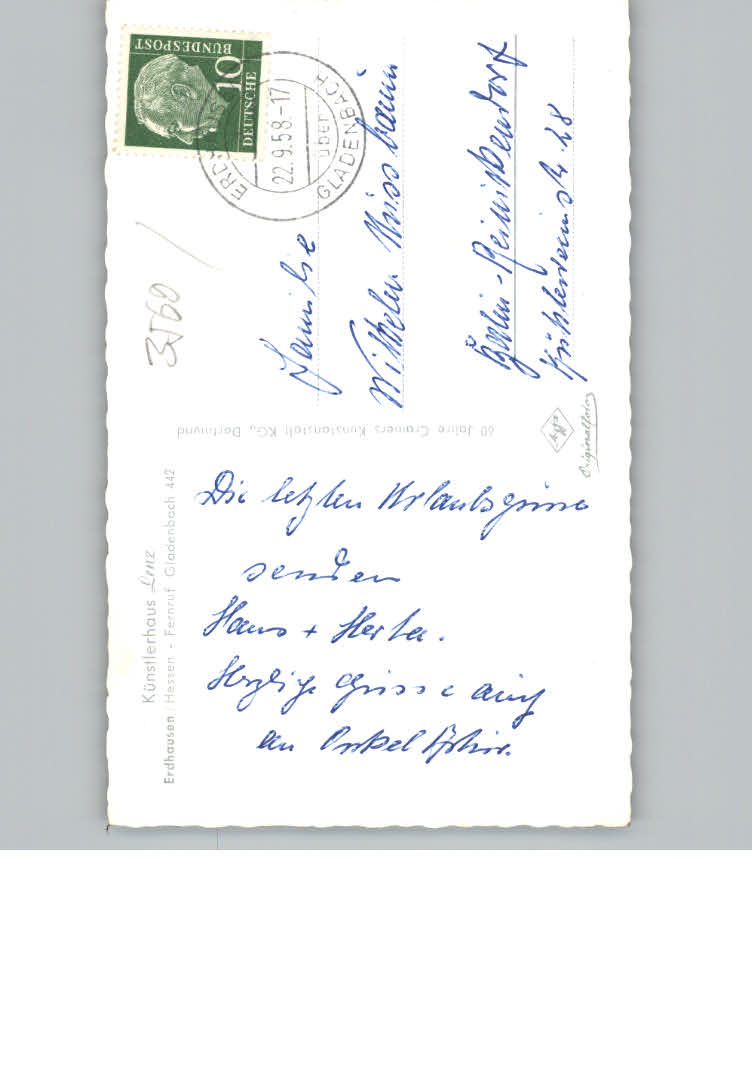 Künstlerhaus Lenz
Erdhausen / Hessen - Fernruf Gladenbach 442
Die letzten Urlaubsgrüsse
senden
Hans + Herta.
Herzliche Grüsse auch
an Onkel
60 Jahre Cramers Kunstanstalt KG., Dortmund
Originalfoto
DEUTSCHE
BUNDESPOST
10
22.9.58.-17
über
GLADENBACH
3560
Familie
Wilhelm Nussbaum
Berlin-Reinickendorf
28